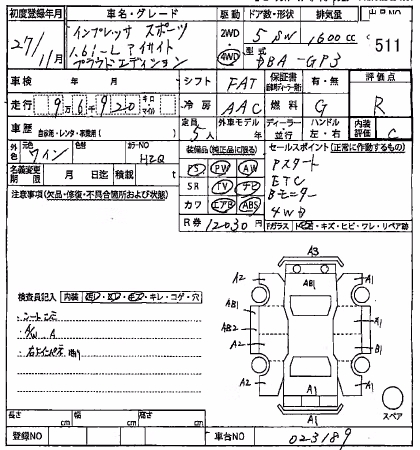 初度登録年月 車名・グレード 駆動 ドア数・形状 排気量 出品NO
27/11月 インプレッサ スポーツ 2WD 5 SW 1600cc 511
1.6i-L アイサイト 4WD 型式
プラウドエディション DBA-GP3
車検 年 月 シフト FAT 保証書 有・無 評価点
走行 9万6千920 キロ マイル 冷房 AAC 燃料 G R
車歴 自家用・レンタ・事業用( ) 定員 5人 外車モデル 年 ディーラー 並行 ハンドル 左・右 内装評価 C
外色 元色 ワイン 色替 カラーNO H2Q 装備品(純正品に限る) セールスポイント(正常に作動するもの)
PS PW AW Pスタート
名義変更期限 月 日迄 積載 t SR TV ナビ ETC
注意事項(欠品・修復・不具合箇所および状態) カワ エアB ABS Bモニター
4WD
R券 12030円 Fガラス
A3
A2 AB1 A1
検査員記入 内装 キレ・コゲ・穴
AB1 A1
AB2
A/W A
A2 B1
A2 A1 A1
A1
スペア
長さ cm 幅 cm 高さ cm
登録NO 車台NO 023189